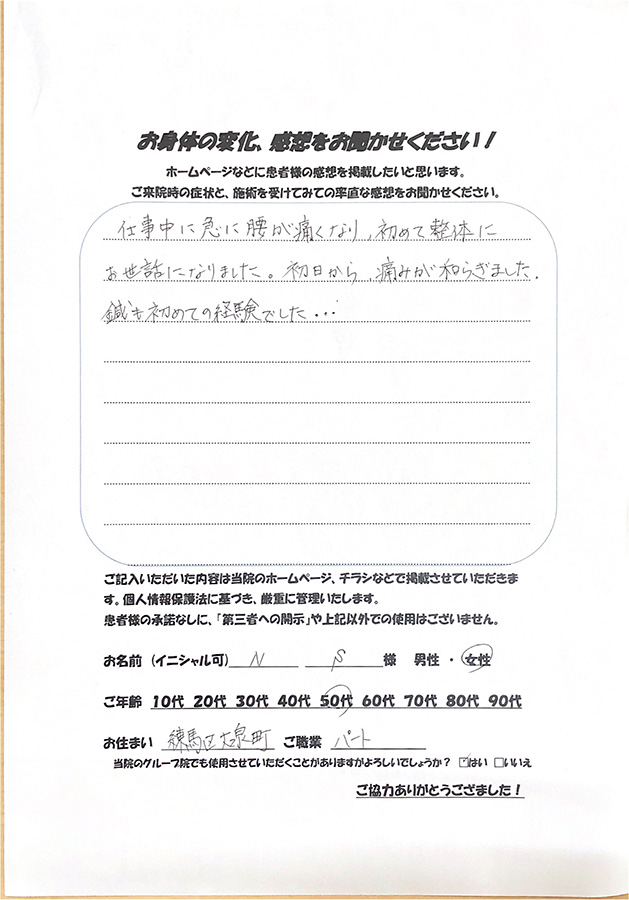 お身体の変化、感想をお聞かせください！
ホームページなどに患者様の感想を掲載したいと思います。
ご来院時の症状と、施術を受けてみての率直な感想をお聞かせください。
仕事中に急に腰が痛くなり、初めて整体に
お世話になりました。初日から、痛みが和らぎました.
鍼も初めての経験でした・・・
ご記入いただいた内容は当院のホームページ、チラシなどで掲載させていただきま
す。個人情報保護法に基づき、厳重に管理いたします。
患者様の承諾なしに、「第三者への開示」や上記以外での使用はございません。
お名前（イニシャル可） N S 様 男性 ・ 女性
ご年齢 10代 20代 30代 40代 50代 60代 70代 80代 90代
お住まい 練馬区大泉町 ご職業 パート
当院のグループ院でも使用させていただくことがありますがよろしいでしょうか？ ☑はい □いいえ
ご協力ありがとうござました！